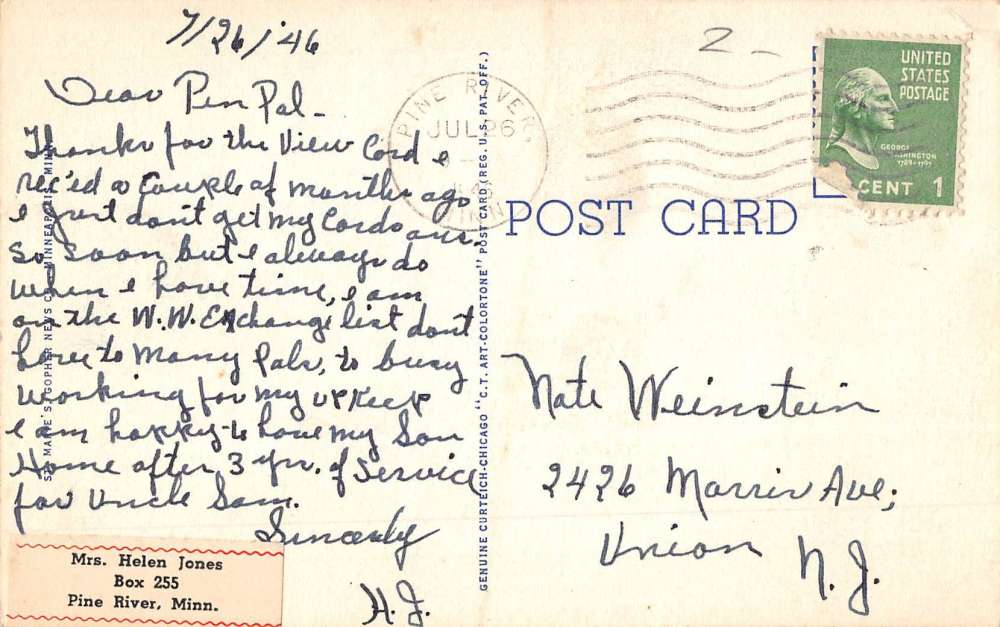 7/26/'46
Dear Pen Pal -
Thanks for the View Card I
rec'ed a Couple of months ago
I just don't get my Cards ans.
So soon but I always do
when I have time, I am
on the W.W. Exchange list dont
have to many Pals, to busy
working for my upkeep
I am happy to have my Son
Home after 3 yrs. of Service
for Uncle Sam.
Sincerely
H.J.
Mrs. Helen Jones
Box 255
Pine River, Minn.
GOPHER NEWS MINNEAPOLIS
GENUINE CURTEICH-CHICAGO "C.T. ART-COLORTONE" POST CARD (REG. U.S. PAT. OFF.)
PINE RIVER
JUL 26
MINN
2 -
UNITED
STATES
POSTAGE
GEORGE
1789-1797
CENT 1
POST CARD
Nate Weinstein
2426 Morris Ave;
Union N.J.